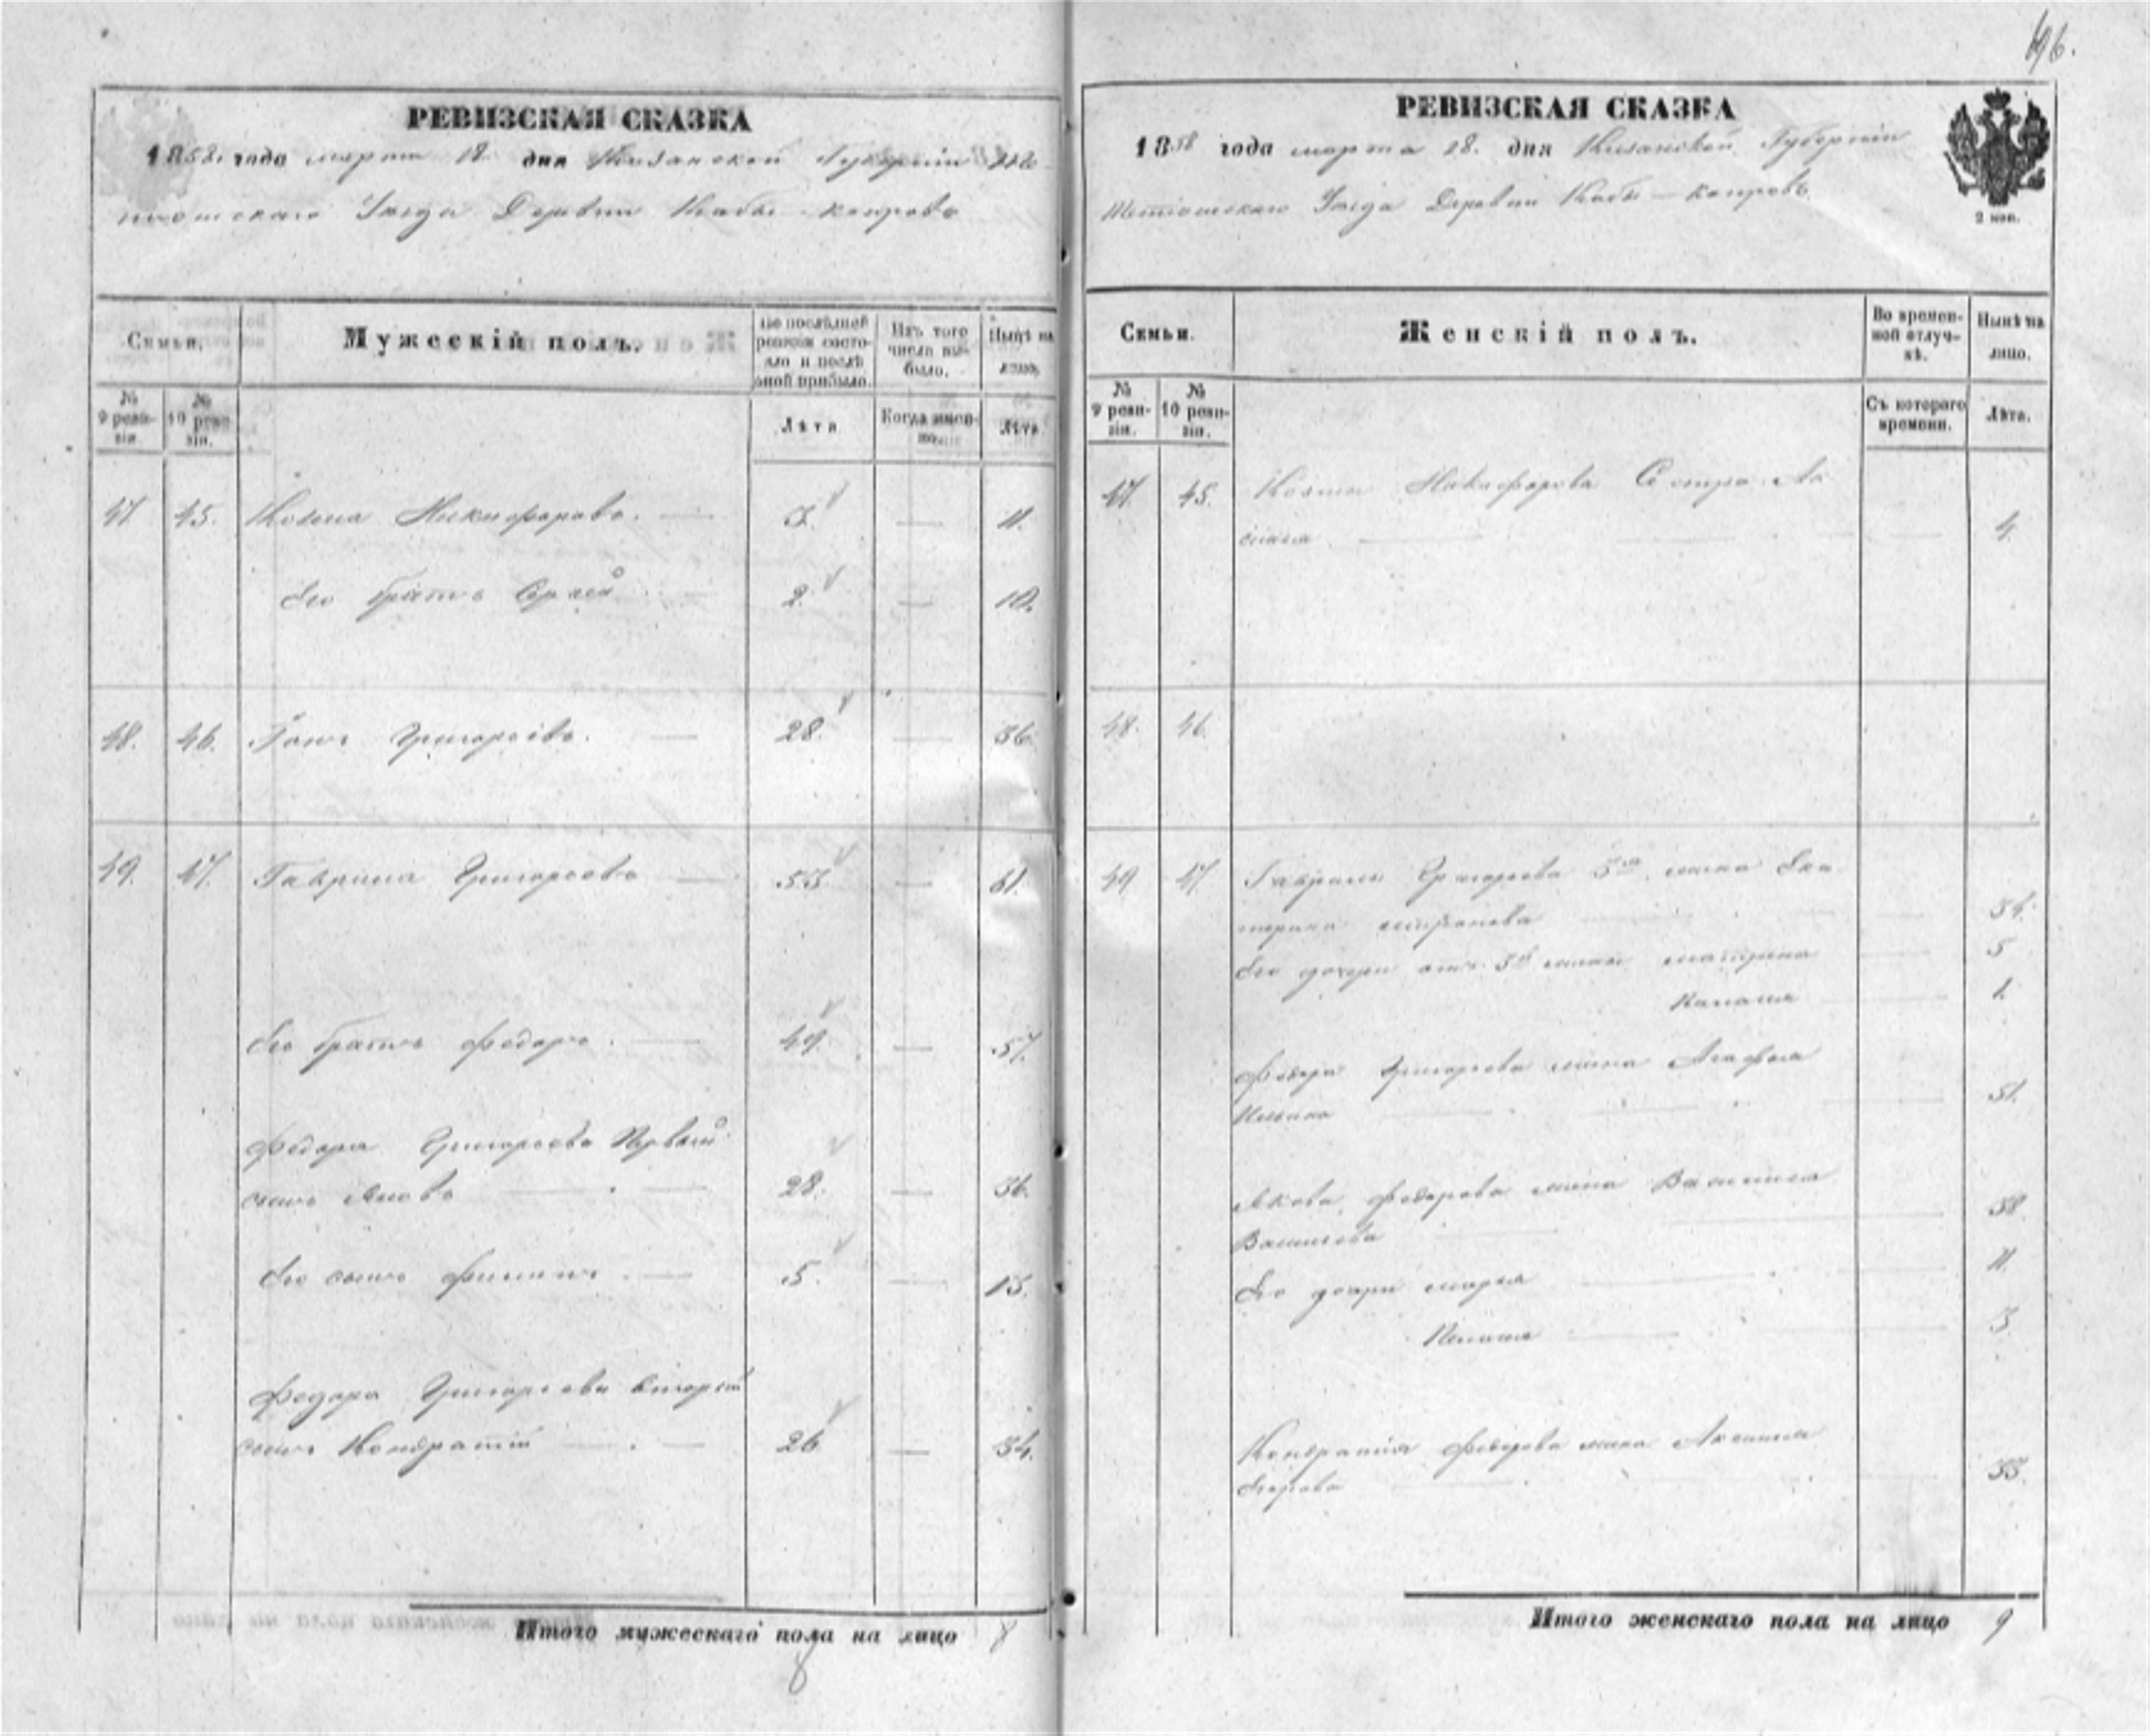 196.
РЕВИЗСКАЯ СКАЗКА
1858 года марта 18 дня Казанской Губернии Те
тюшскаго Уезда Деревни Кабы-копрово
Семьи.
Мужескій полъ.
По послѣдней ревизіи состояло и послѣ оной прибыло.
Изъ того числа выбыло.
Нынѣ на лицо.
№ 9 ревизіи.
№ 10 ревизіи.
Лѣта
Когда именно.
Лѣта.
47. 45. Козма Никифоровъ. 3. 11.
Его братъ Сергей 2. 10.
48. 46. Григорьевъ. 28. 36.
49. 47. Гаврила Григорьевъ 53. 61.
Его братъ Федоръ. 49. 57.
Федора Григорьева Первый
сынъ Яковъ 28. 36.
Его сынъ Филипъ. 5. 13.
Федора Григорьева второй
сынъ Кондратій 26 34.
Итого мужескаго пола на лицо 8
8
РЕВИЗСКАЯ СКАЗКА
1858 года марта 18. дня Казанской Губерніи
Тетюшскаго Уезда Деревни Кабы-копровъ
2 коп.
Семьи.
Женскій полъ.
Во временной отлучкѣ.
Нынѣ на лицо.
№ 9 ревизіи.
№ 10 ревизіи.
Съ котораго времени.
Лѣта.
47 45. Козмы Никифорова Сестра
4.
48. 46.
49 47 Гаврилы Григорьева 3я жена Ека
терина 34.
Его дочери отъ 3й жены Матрена 5
1.
Федора Григорьева жена Агафья
51.
Якова Федорова жена Василиса
Васильева 38.
Его дочери Марья 11.
3.
Кондратія Федорова жена Аксинья
Егорова 33.
Итого женскаго пола на лицо 9